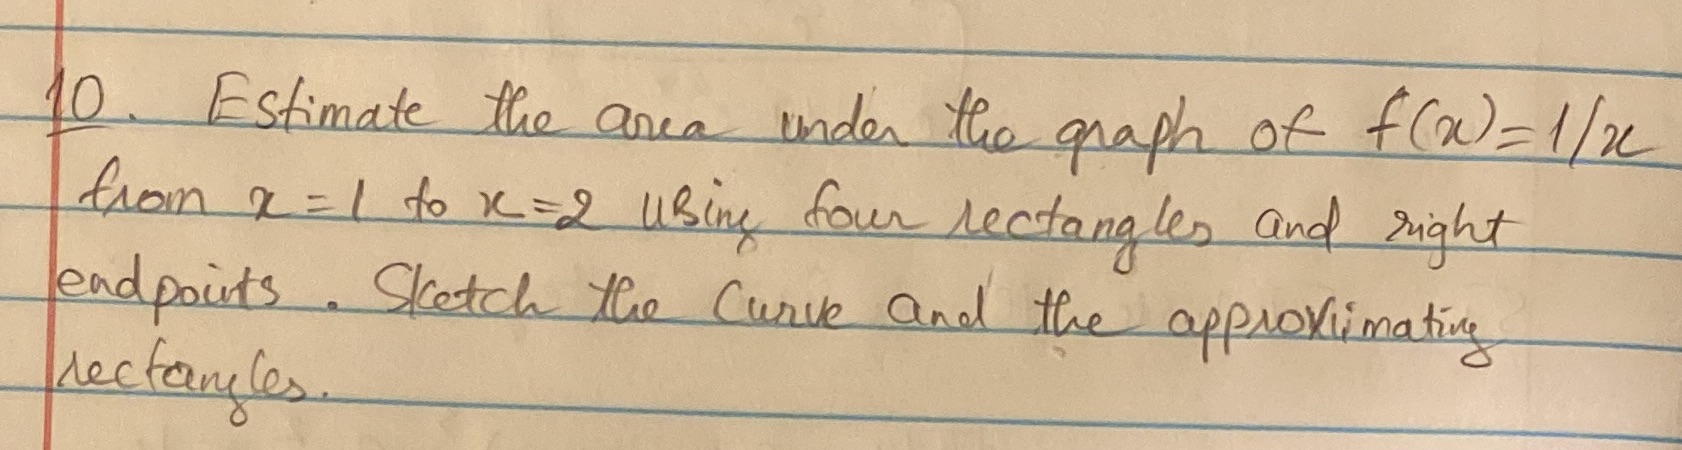 10. Estimate the area under the graph of f(x)=1/x
from x=1 to x=2 using four rectangles and right
endpoints. Sketch the curve and the approximating
rectangles.